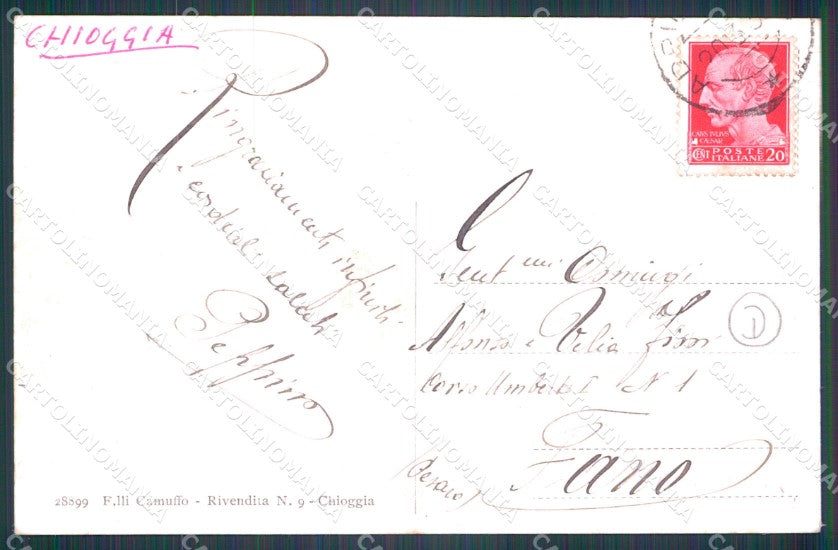 CHIOGGIA
Ringraziamenti infiniti
e cordiali saluti
Peppino
CAIVS IVLIVS
CAESAR
CENT POSTE ITALIANE 20
Gent.mi Coniugi
Alfonso e Velia
Corso Umberto I N 1
Fano
(Pesaro)
D
28899 F.lli Camuffo - Rivendita N. 9 - Chioggia
CARTOLINOMANIA